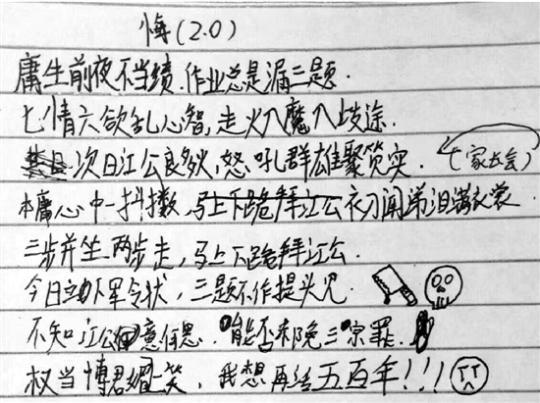 悔(2.0)
庸生前夜不当绩.作业总是漏三题.
七情六欲乱心智,走火入魔入歧途.
次日江公良多欤,怒吼群雄聚篑实.(家长会)
本庸心中一抖擞,初闻涕泪满衣裳.
三步并坐两步走,马上下跪拜江公.
今日立下军令状,三题不作提头见.
不知江公意何思.能否利晚三宗罪.
权当博君一笑,我想再活五百年!!!